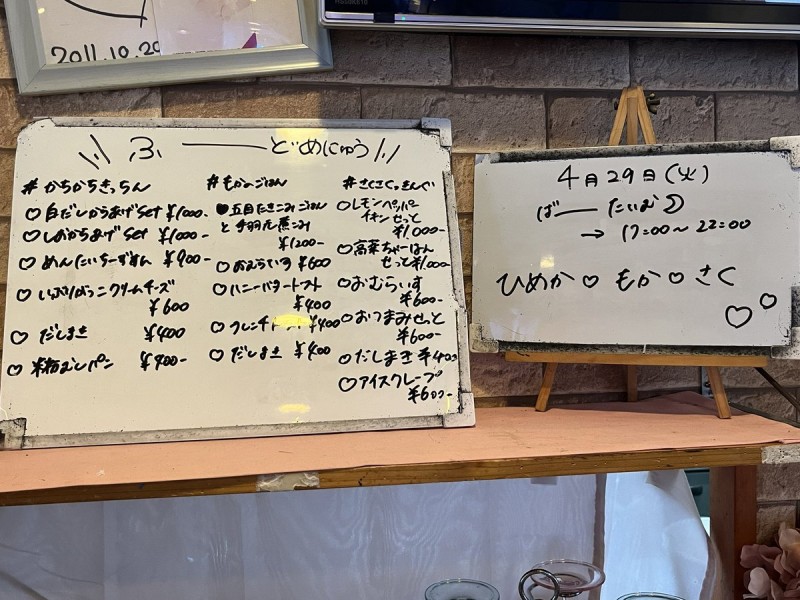 2011.10.29
\\\ ふ——どめにゅう //
# かちかちきっちん
♡白だしからあげset ¥1000-
♡しおからあげset ¥1000-
♡めんたいちーず ¥900-
♡いぶりがっこクリームチーズ
¥600
♡だしまき ¥400
♡むしパン ¥400-
# もかのごはん
♥五目たきこみごはん
と手羽元煮こみ
¥1200-
♡おむらいす ¥600
♡ハニーバタートースト
¥400
♡フレンチトースト ¥400
♡だしまき ¥400
# さくさくっきんぐ
♡レモンペッパー
チキンせっと
¥1,000-
♡高菜ちゃーはん
せっと¥1,000-
♡おむらいす
¥600-
♡おつまみせっと
¥600-
♡だしまき ¥400
♡アイスクレープ
¥600-
4月29日(火)
ばーたいむ
→ 17:00~22:00
ひめか♡もか♡さく
♡♡